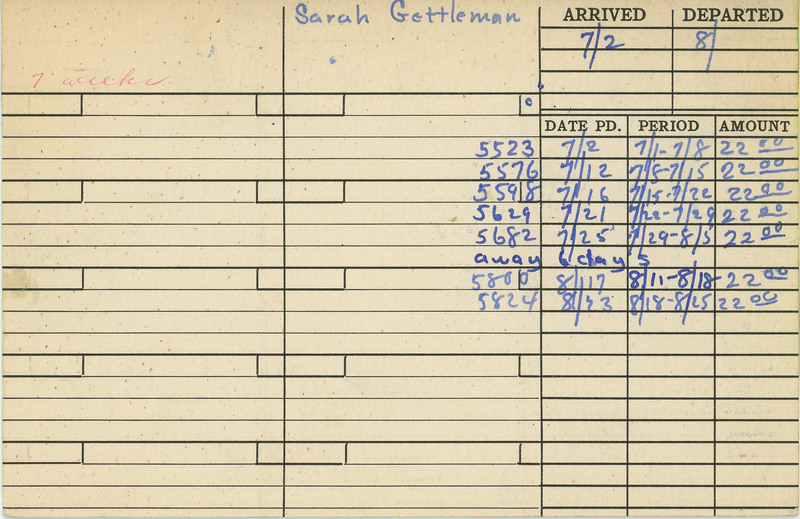 Sarah Gettleman
ARRIVED DEPARTED
7/2 8/
7 weeks
DATE PD. PERIOD AMOUNT
5523 7/2 7/1-7/8 22 00
5576 7/12 7/8-7/15 22 00
5598 7/16 7/15-7/22 22 00
5629 7/21 7/22-7/29 22 00
5682 7/25 7/29-8/5 22 00
away 6 days
5800 8/17 8/11-8/18 22 00
5824 8/23 8/18-8/25 22 00